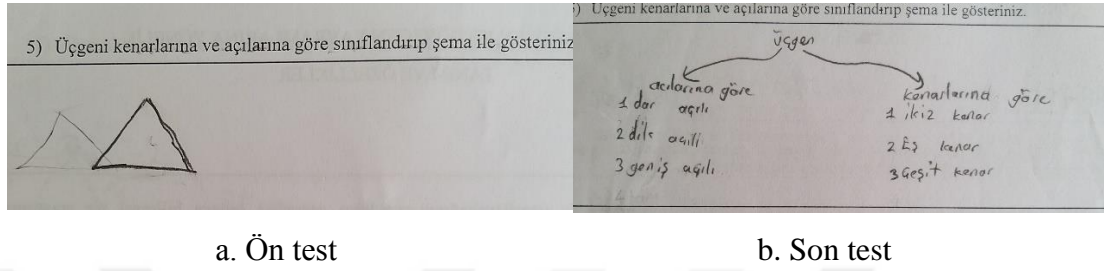 5) Üçgeni kenarlarına ve açılarına göre sınıflandırıp şema ile gösteriniz
) Üçgeni kenarlarına ve açılarına göre sınıflandırıp şema ile gösteriniz.
üçgen
açılarına göre
1 dar açılı
2 dik açılı
3 geniş açılı
4
kenarlarına göre
1 ikiz kenar
2 Eş kenar
3 Çeşit kenar
a. Ön test
b. Son test